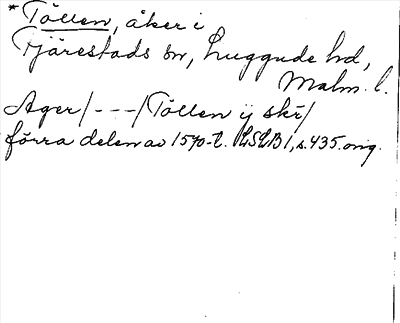 *Töllen, åker i
Fjärestads sn, Luggude hd,
Malm. l.
Ager/---/Töllen ij skr/
förra delen av 1570-t. LSLB1, s. 435. orig.